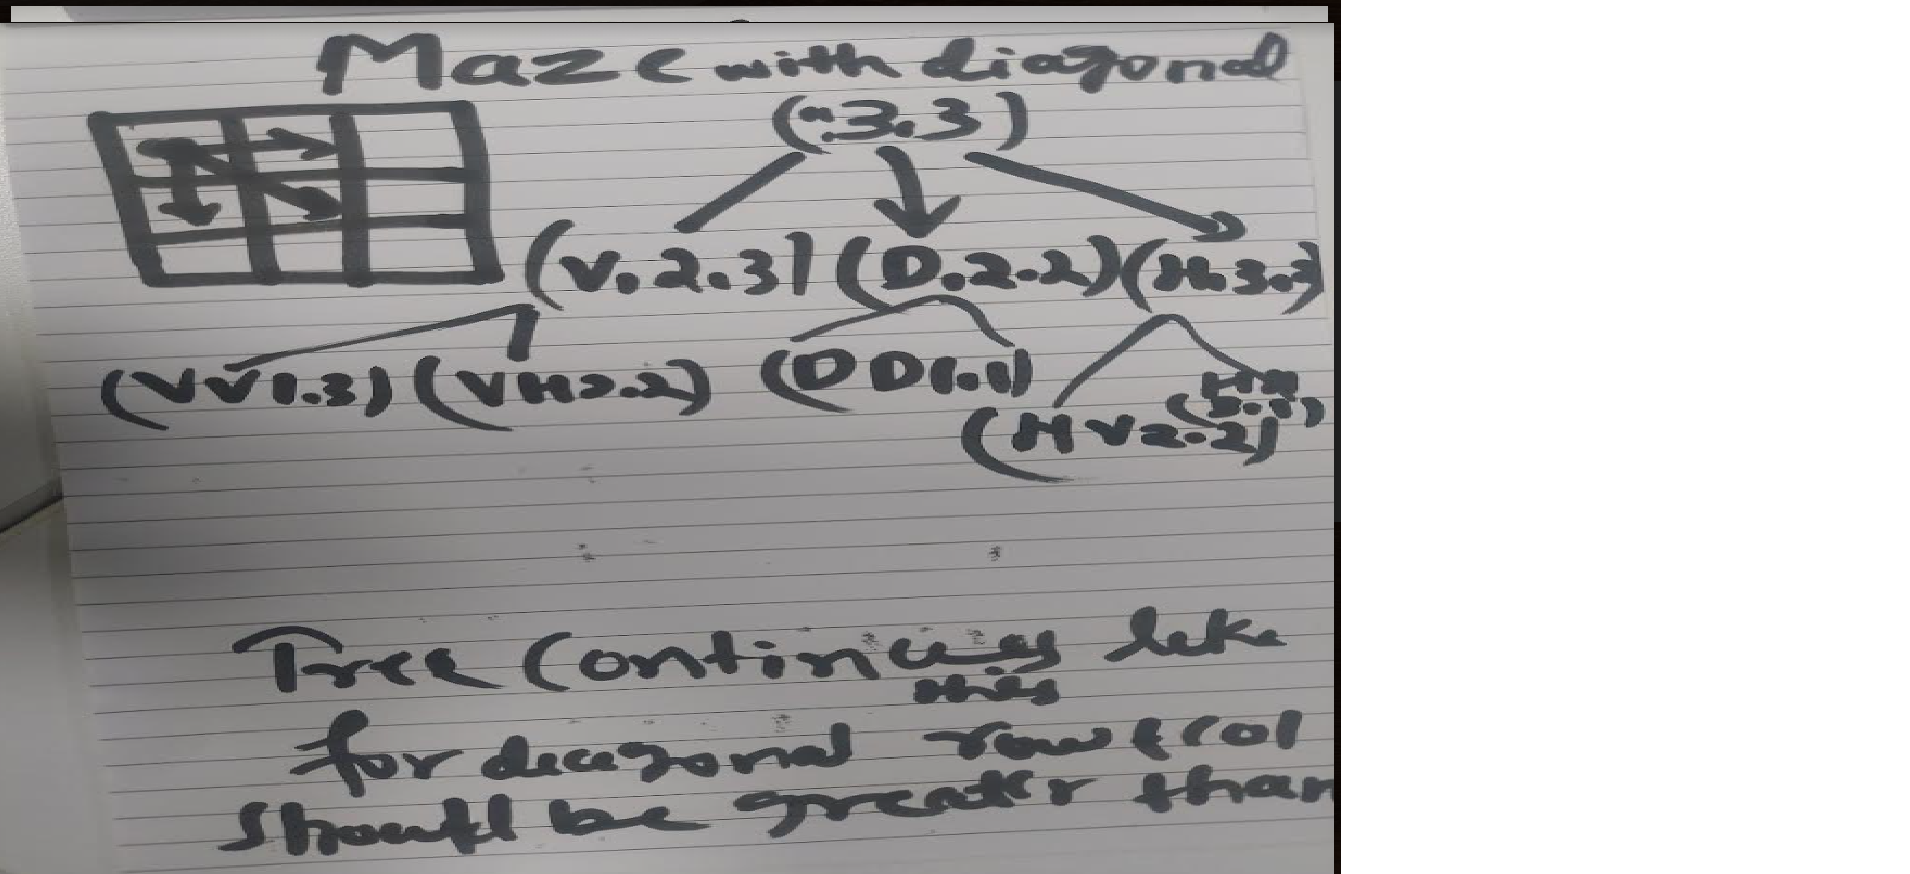 Maze with diagonal
(".3.3)
(V.2.3) (D.2.2) (H.3.
(VV1.3) (VH2.2) (DD1.1)
(HV2.2)
Tree Continues like
this
for diagonal row & col
should be greater than